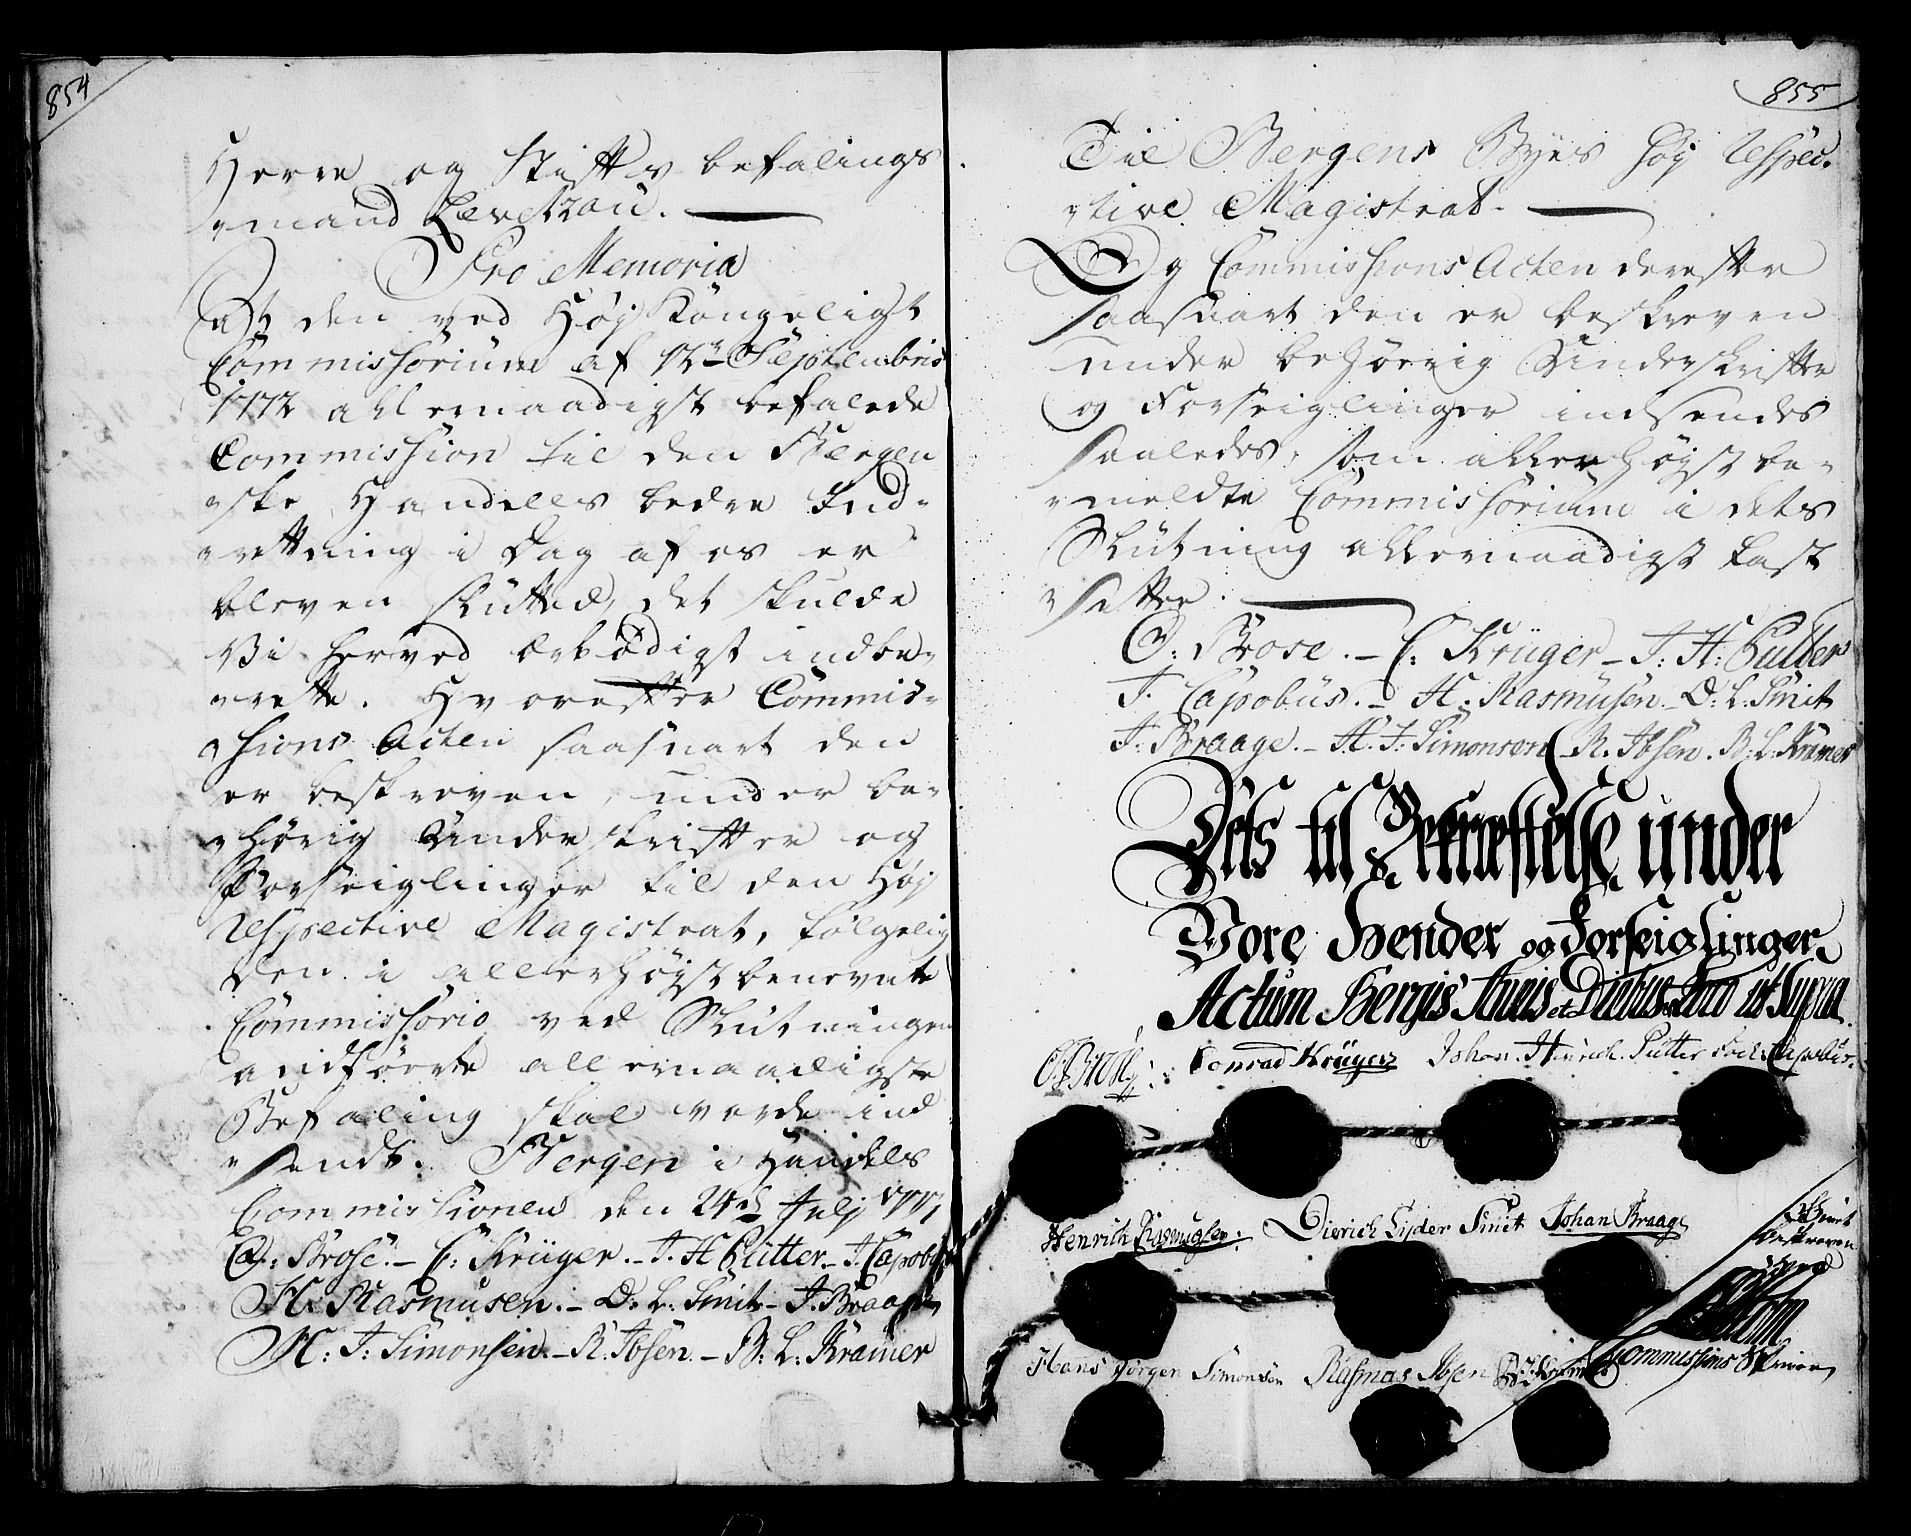 854
Herre og Stifts befalings
mand Levetzau.
Pro Memoria
At den ved Høj Kongeligt
Commissorium af 12te Septembris
1772 allernaadigst befalede
Commission til den Bergen
ske Handells bedre Ind-
retning i Dag af os er
bleven slutted, det skulde
Vi herved ærbødigst indbe-
rette. Hvorefter Commis-
sions Acten saasnart den
er beskreven, under be-
hørig Underskrifter og
Forseiglinger til den Høj
Respective Magistrat, følgelig
den i allerhøgstbenevnte
Commissorio ved Slutningen
andførte allernaadigste
Befaling skal vorde ind
sendt. Bergen i Handels
Commissionen den 24de Julj
O: Brose. - C: Krüger. - J. H Pütter - J. Capobus
H: Rasmusen. - D. L. Smit - J. Braage
H. J: Simonsen. - R. Ibsen. - B: L: Kramer
855
Til Bergens Byes høj Respec-
tive Magistrat.
Og Commissions Acten derefter
saasnart den er beskreven
under behørig Underskrifter
og Forseiglinger indsendes
saaledes, som allerhøgst be-
meldte Commissorium i dets
Slutning allernaadigst fast
setter.
O: Brose. - C: Krüger - J: H: Putter
J. Capobus. - H. Rasmusen - D: L. Smit
J. Braage. - H. J: Simonsen - R. Ibsen. B: L: Kramer
Dets til Bekræftelse under
Vore Hender og Forseiglinger
Actum Bergis Annis et Diebus ut Supra.
O: Brose: Conrad Krüger Johan Hinrich Pütter Jac: Capobus.
Henrich Rasmusen: Dierich Lyder Smit Johan Braage
beskreven
Holm
Hans Jörgen Simonsen Rasmus Ibsen Commissions Skriver